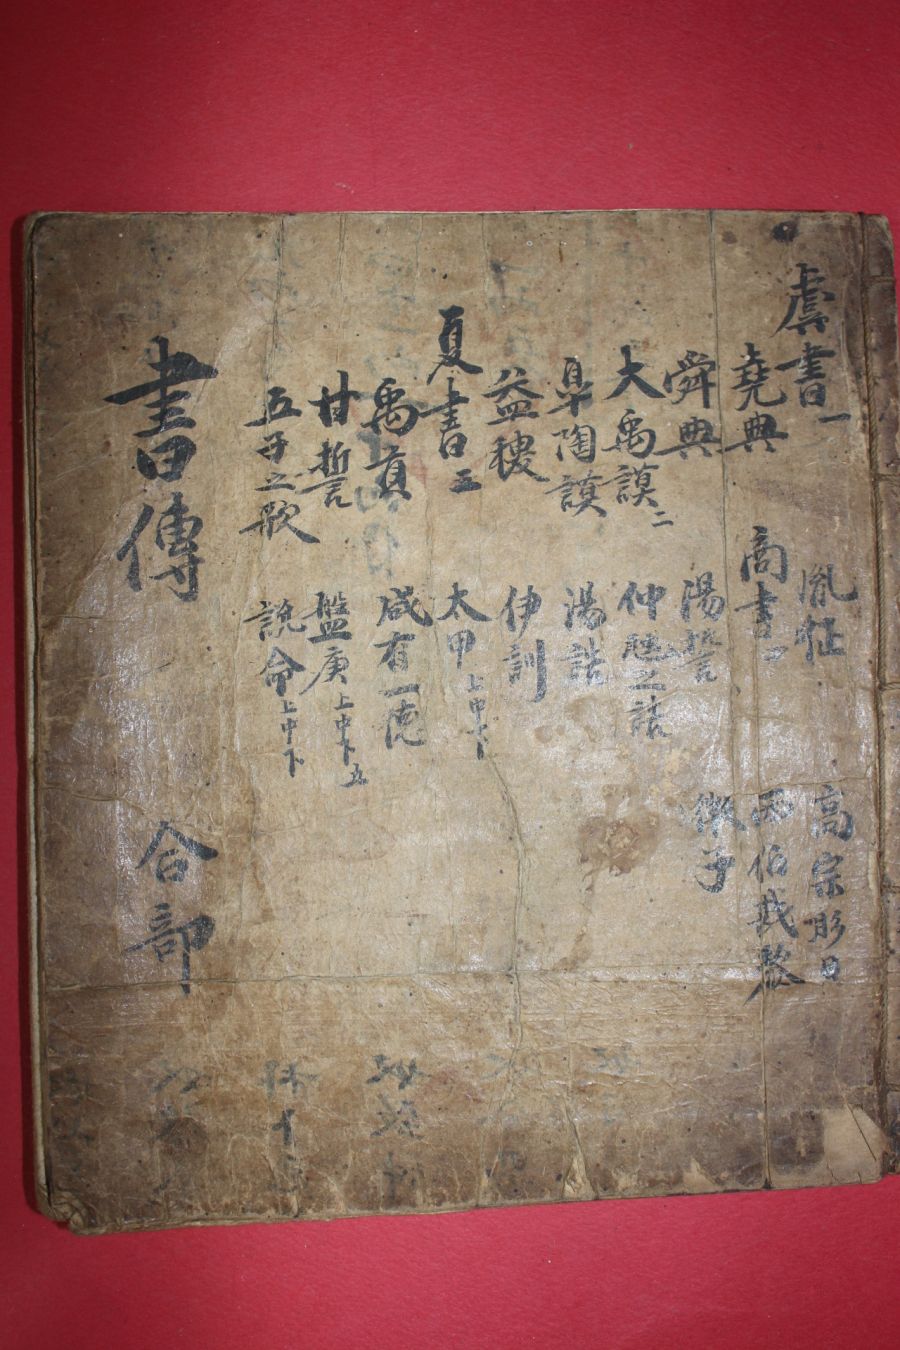 虞書一
堯典
舜典
大禹謨二
皐陶謨
益稷
夏書三
禹貢
甘誓
五子之歌
胤征
商書一
湯誓
仲虺之誥
湯誥
伊訓
太甲上中下
咸有一德
盤庚上中下五
說命上中下
高宗肜日
西伯戡黎
微子
書傳
合部